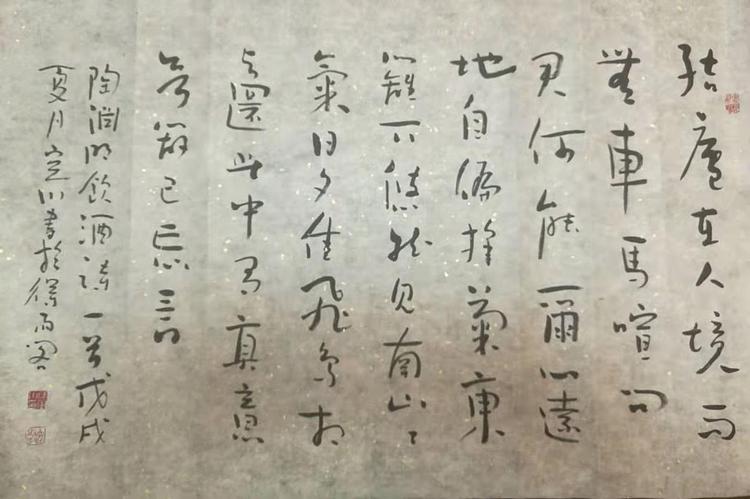 結廬在人境而
無車馬喧问
君何能爾心遠
地自偏採菊東
籬下悠然見南山々
氣日夕佳飛鳥相
与還此中有真意
欲辯已忘言
陶淵明飲酒詩一首戊戌
夏月川書於雨阁